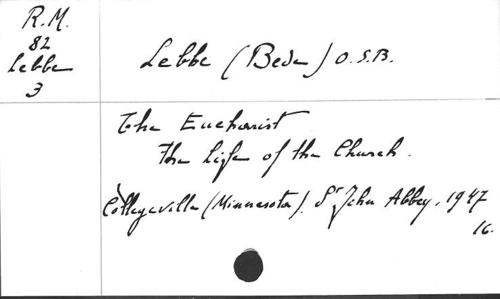 R.M.
82
Lebbe
3
Lebbe (Beda) O.S.B.
The Eucharist
The life of the Church.
Collegeville (Minnesota). St John Abbey. 1947
16.